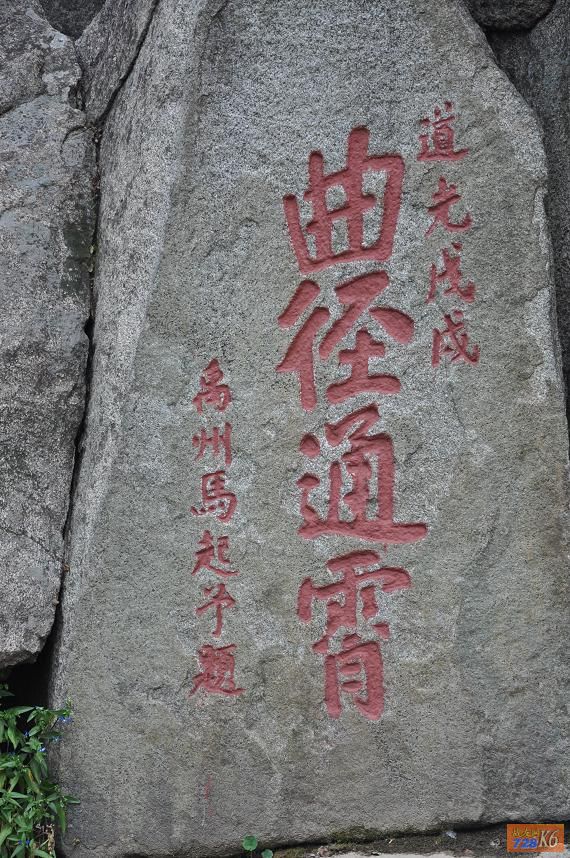 道光戊戌
曲径通霄
禹州馬起予題
728K6